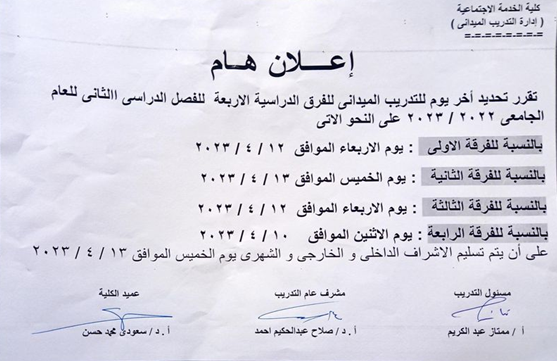 كلية الخدمة الاجتماعية
( إدارة التدريب الميدانى )
=-=-=-=-=-=-=-=
إعــلان هــام
تقرر تحديد أخر يوم للتدريب الميدانى للفرق الدراسية الاربعة للفصل الدراسى االثانى للعام
الجامعى ٢٠٢٢ / ٢٠٢٣ على النحو الاتى
بالنسبة للفرقة الاولى : يوم الاربعاء الموافق ١٢ / ٤ / ٢٠٢٣
بالنسبة للفرقة الثانية : يوم الخميس الموافق ١٣ / ٤ / ٢٠٢٣
بالنسبة للفرقة الثالثة : يوم الاربعاء الموافق ١٢ / ٤ / ٢٠٢٣
بالنسبة للفرقة الرابعة : يوم الاثنين الموافق ١٠ / ٤ / ٢٠٢٣
على أن يتم تسليم الاشراف الداخلى و الخارجى و الشهرى يوم الخميس الموافق ١٣ / ٤ / ٢٠٢٣
مسئول التدريب مشرف عام التدريب عميد الكلية
أ / ممتاز عبد الكريم أ . د / صلاح عبدالحكيم احمد أ . د / سعودى محمد حسن